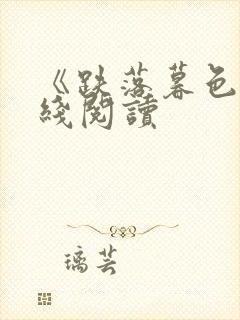 《跌落暮色
綫閱讀
璃芸